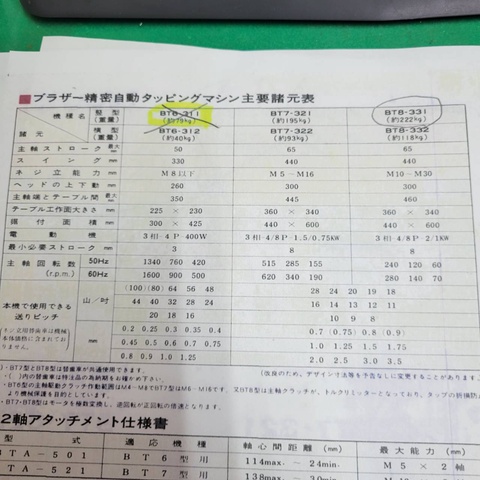 ■ブラザー精密自動タッピングマシン主要諸元表
機種名 竪型(重量) BT6-311 (約79kg) BT7-321 (約195kg) BT8-331 (約222kg)
諸元 横型(重量) BT6-312 (約40kg) BT7-322 (約93kg) BT8-332 (約118kg)
主軸ストローク 最大mm 50 65 65
スイング mm 330 440 440
ネジ立能力 mm M8以下 M5-M16 M10-M30
ヘッドの上下動 mm 260 300 300
主軸端とテーブル間 最大mm 350 445 460
テーブル工作面大きさ mm 225 × 230 360 × 340 360 × 340
据付面積 mm 300 × 425 440 × 600 440 × 600
電動機 3相-4P 400W 3相-4/8P-1.5/0.75KW 3相-4/8P-2/1KW
最小必要ストローク mm 3 8 8
主軸回転数 (r.p.m.) 50Hz 1340 760 420 515 285 155 240 120 60
60Hz 1600 900 500 620 340 190 280 140 70
本機で使用できる送りピッチ 山/吋 (100)(80) 64 56 48 28 24 20 19 18
44 40 32 28 24 16 14 13 12 11
20 18 16 10 9 8
mm 0.2 0.25 0.3 0.35 0.4 0.7 (0.75) 0.8 (0.9)
0.45 0.5 0.6 0.7 0.75 1.0 1.25 1.5 1.75
0.8 0.9 1.0 1.25 2.0 2.5 3.0 3.5
)・BT7型とBT8型は替歯車が共通使用できます。
・( )内の替歯車は特注品の為納期をお確かめ下さい。
(改良のため、デザイン寸法等を予告なしに変更することがあります。
2軸アタッチメント仕様書
型式 適応機種 軸心間距離(mm) 最大能力(mm)
TA-501 BT6型用 114max.-24min. M5×2軸
TA-521 BT7型用